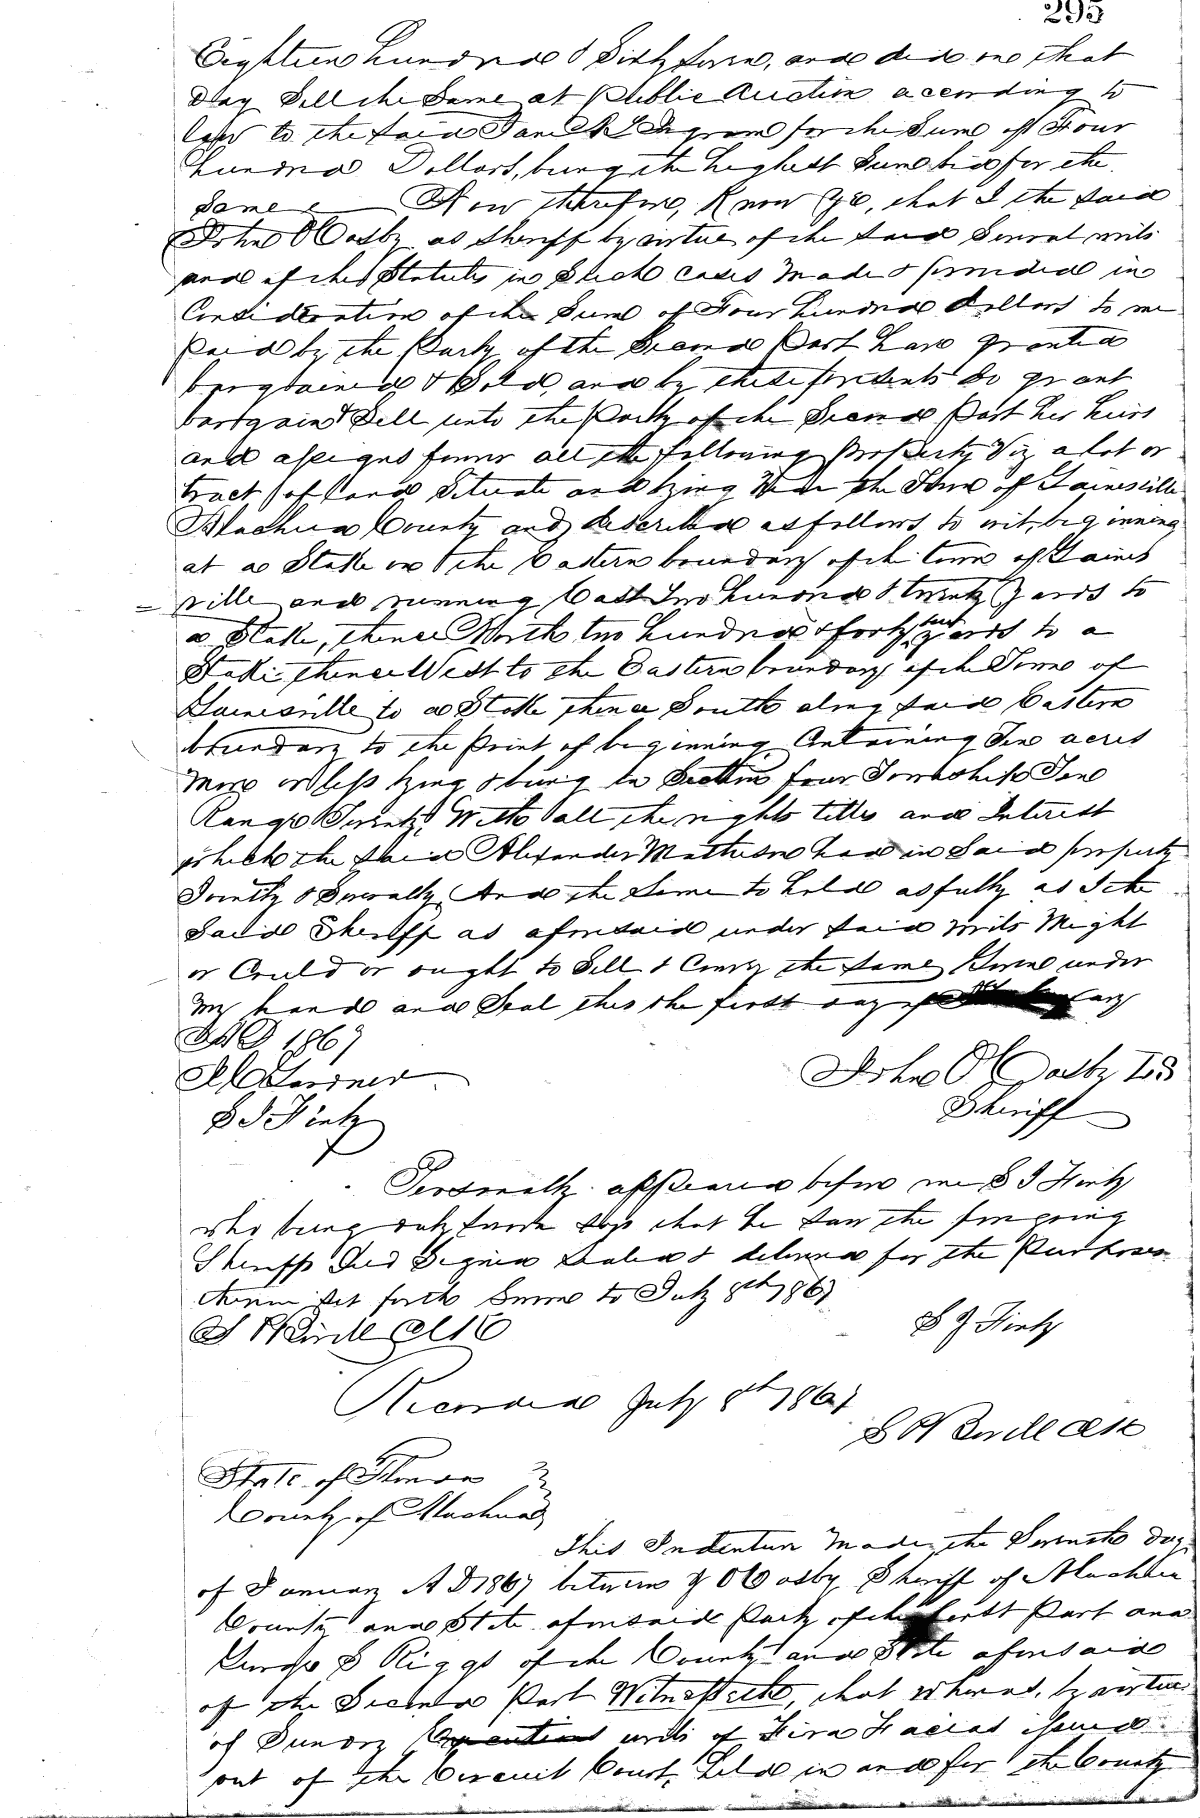 295
Eighteen hundred & Sixty seven, and did on that
day Sell the Same at Public Auction according to
law to the said Jane R Ingram for the Sum of Four
hundred Dollars, being the highest Sum bid for the
Same Now therefore, Know Ye, that I the said
John O Casby as Sheriff by virtue of the said Several writs
and of the Statutes in Such cases Made & provided in
Consideration of the Sum of Four hundred dollars to me
Paid by the Party of the Second Part have granted
bargained & Sold, and by these presents do grant
bargain & Sell unto the Party of the Second Part her heirs
and assigns forever all the following Property Viz a lot or
tract of land Situate and lying Near the Town of Gainesville
Alachua County and described as follows to wit, beginning
at a Stake on the Eastern boundary of the town of Gaines
ville and running East Two hundred & twenty Yards to
a Stake, thence North two hundred & forty yards to a
Stake thence West to the Eastern boundary of the Town of
Gainesville to a Stake thence South along said Eastern
boundary to the Point of beginning Containing Ten acres
More or less lying & being in Section four Township Ten
Range Twenty, With all the rights titles and Interest
which the said Alexander Matheson had in Said property
Jointly & Severally And the Same to hold as fully as I the
Said Sheriff as aforesaid under said writs Might
or Could or ought to Sell & Convey the same Given under
My hand and Seal this the first day of
AD 1867
Gardner John O Casby LS
S J Hinty Sheriff
Personally appeared before me S J Hinty
who being duly sworn says that he saw the foregoing
Sheriffs Deed Signed Sealed & delivered for the Purposes
therein set forth Sworn to July 8th 1867
S J Hinty
Recorded July 8th 1867
State of Florida
County of Alachua
This Indenture Made the Seventh day
of January A D 1867 between J O Casby Sheriff of Alachua
County and State aforesaid Party of the first Part and
George S Riggs of the County and State aforesaid
of the Second Part Witnesseth, that whereas, by virtue
of Sundry Executions writs of Fira Facias issued
out of the Circuit Court, held in and for the County